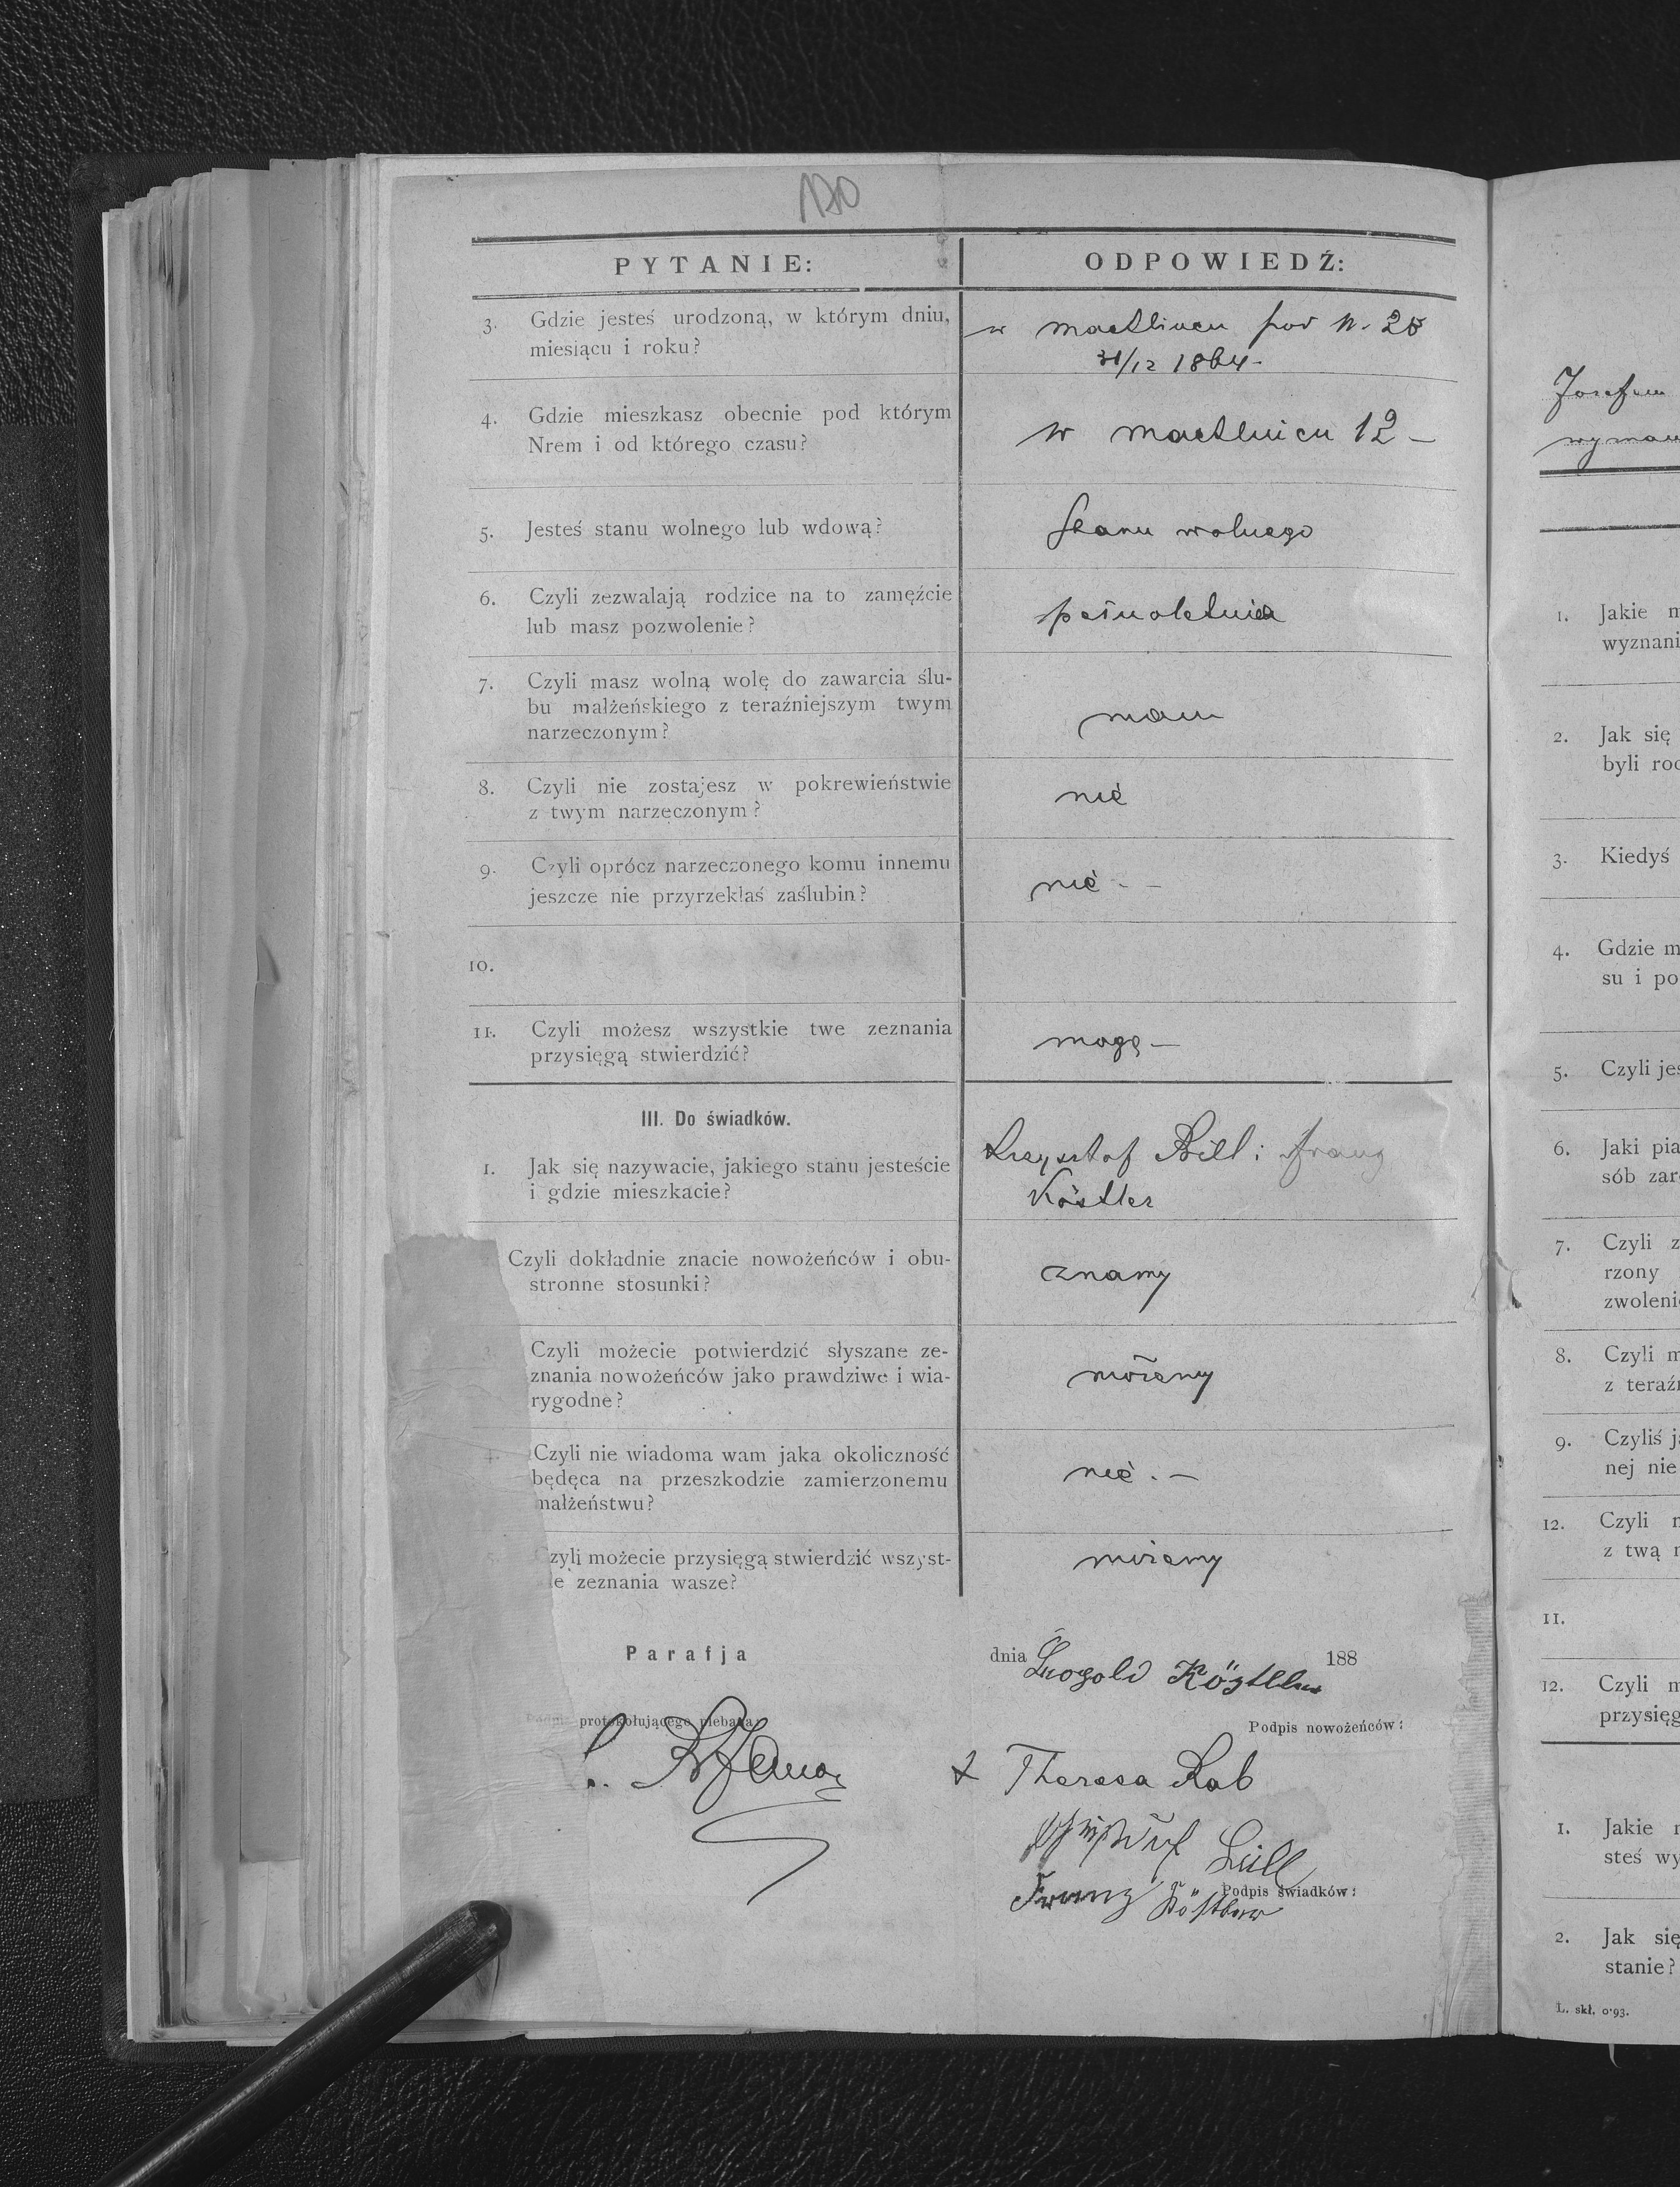 120
PYTANIE:
ODPOWIEDŹ:
3. Gdzie jesteś urodzoną, w którym dniu,
miesiącu i roku?
w pod N. 28
31/12 1864 -
4. Gdzie mieszkasz obecnie pod którym
Nrem i od którego czasu?
w 12 -
5. Jesteś stanu wolnego lub wdową?
stanu wolnego
6. Czyli zezwalają rodzice na to zamęźcie
lub masz pozwolenie?
7. Czyli masz wolną wolę do zawarcia ślu-
bu małżeńskiego z teraźniejszym twym
narzeczonym?
mam
8. Czyli nie zostajesz w pokrewieństwie
z twym narzeczonym?
nie
9. Czyli oprócz narzeczonego komu innemu
jeszcze nie przyrzekłaś zaślubin?
nie - -
10.
11. Czyli możesz wszystkie twe zeznania
przysięgą stwierdzić?
mogę -
III. Do świadków.
1. Jak się nazywacie, jakiego stanu jesteście
i gdzie mieszkacie?
Krzysztof i Franz
Köstler
Czyli dokładnie znacie nowożeńców i obu-
stronne stosunki?
znamy
Czyli możecie potwierdzić słyszane ze-
znania nowożeńców jako prawdziwe i wia-
rygodne?
możemy
4. Czyli nie wiadoma wam jaka okoliczność
będęca na przeszkodzie zamierzonemu
małżeństwu?
nie. -
5. Czyli możecie przysięgą stwierdzić wszyst-
kie zeznania wasze?
możemy
Parafja
dnia 188
Leopold Köstler
Podpis protokołującego plebana:
Podpis nowożeńców:
Theresa Rab
Franz Köstler
Podpis świadków:
Josefem
1. Jakie m
wyznani
2. Jak się
byli rod
3. Kiedyś
4. Gdzie m
su i po
5. Czyli jes
6. Jaki pia
sób zar
7. Czyli z
rzony
zwoleni
8. Czyli m
z teraźn
9. Czyliś j
nej nie
12. Czyli n
z twą n
11.
12. Czyli m
przysięg
1. Jakie n
steś wy
2. Jak się
stanie?
L. skł. 0·93.